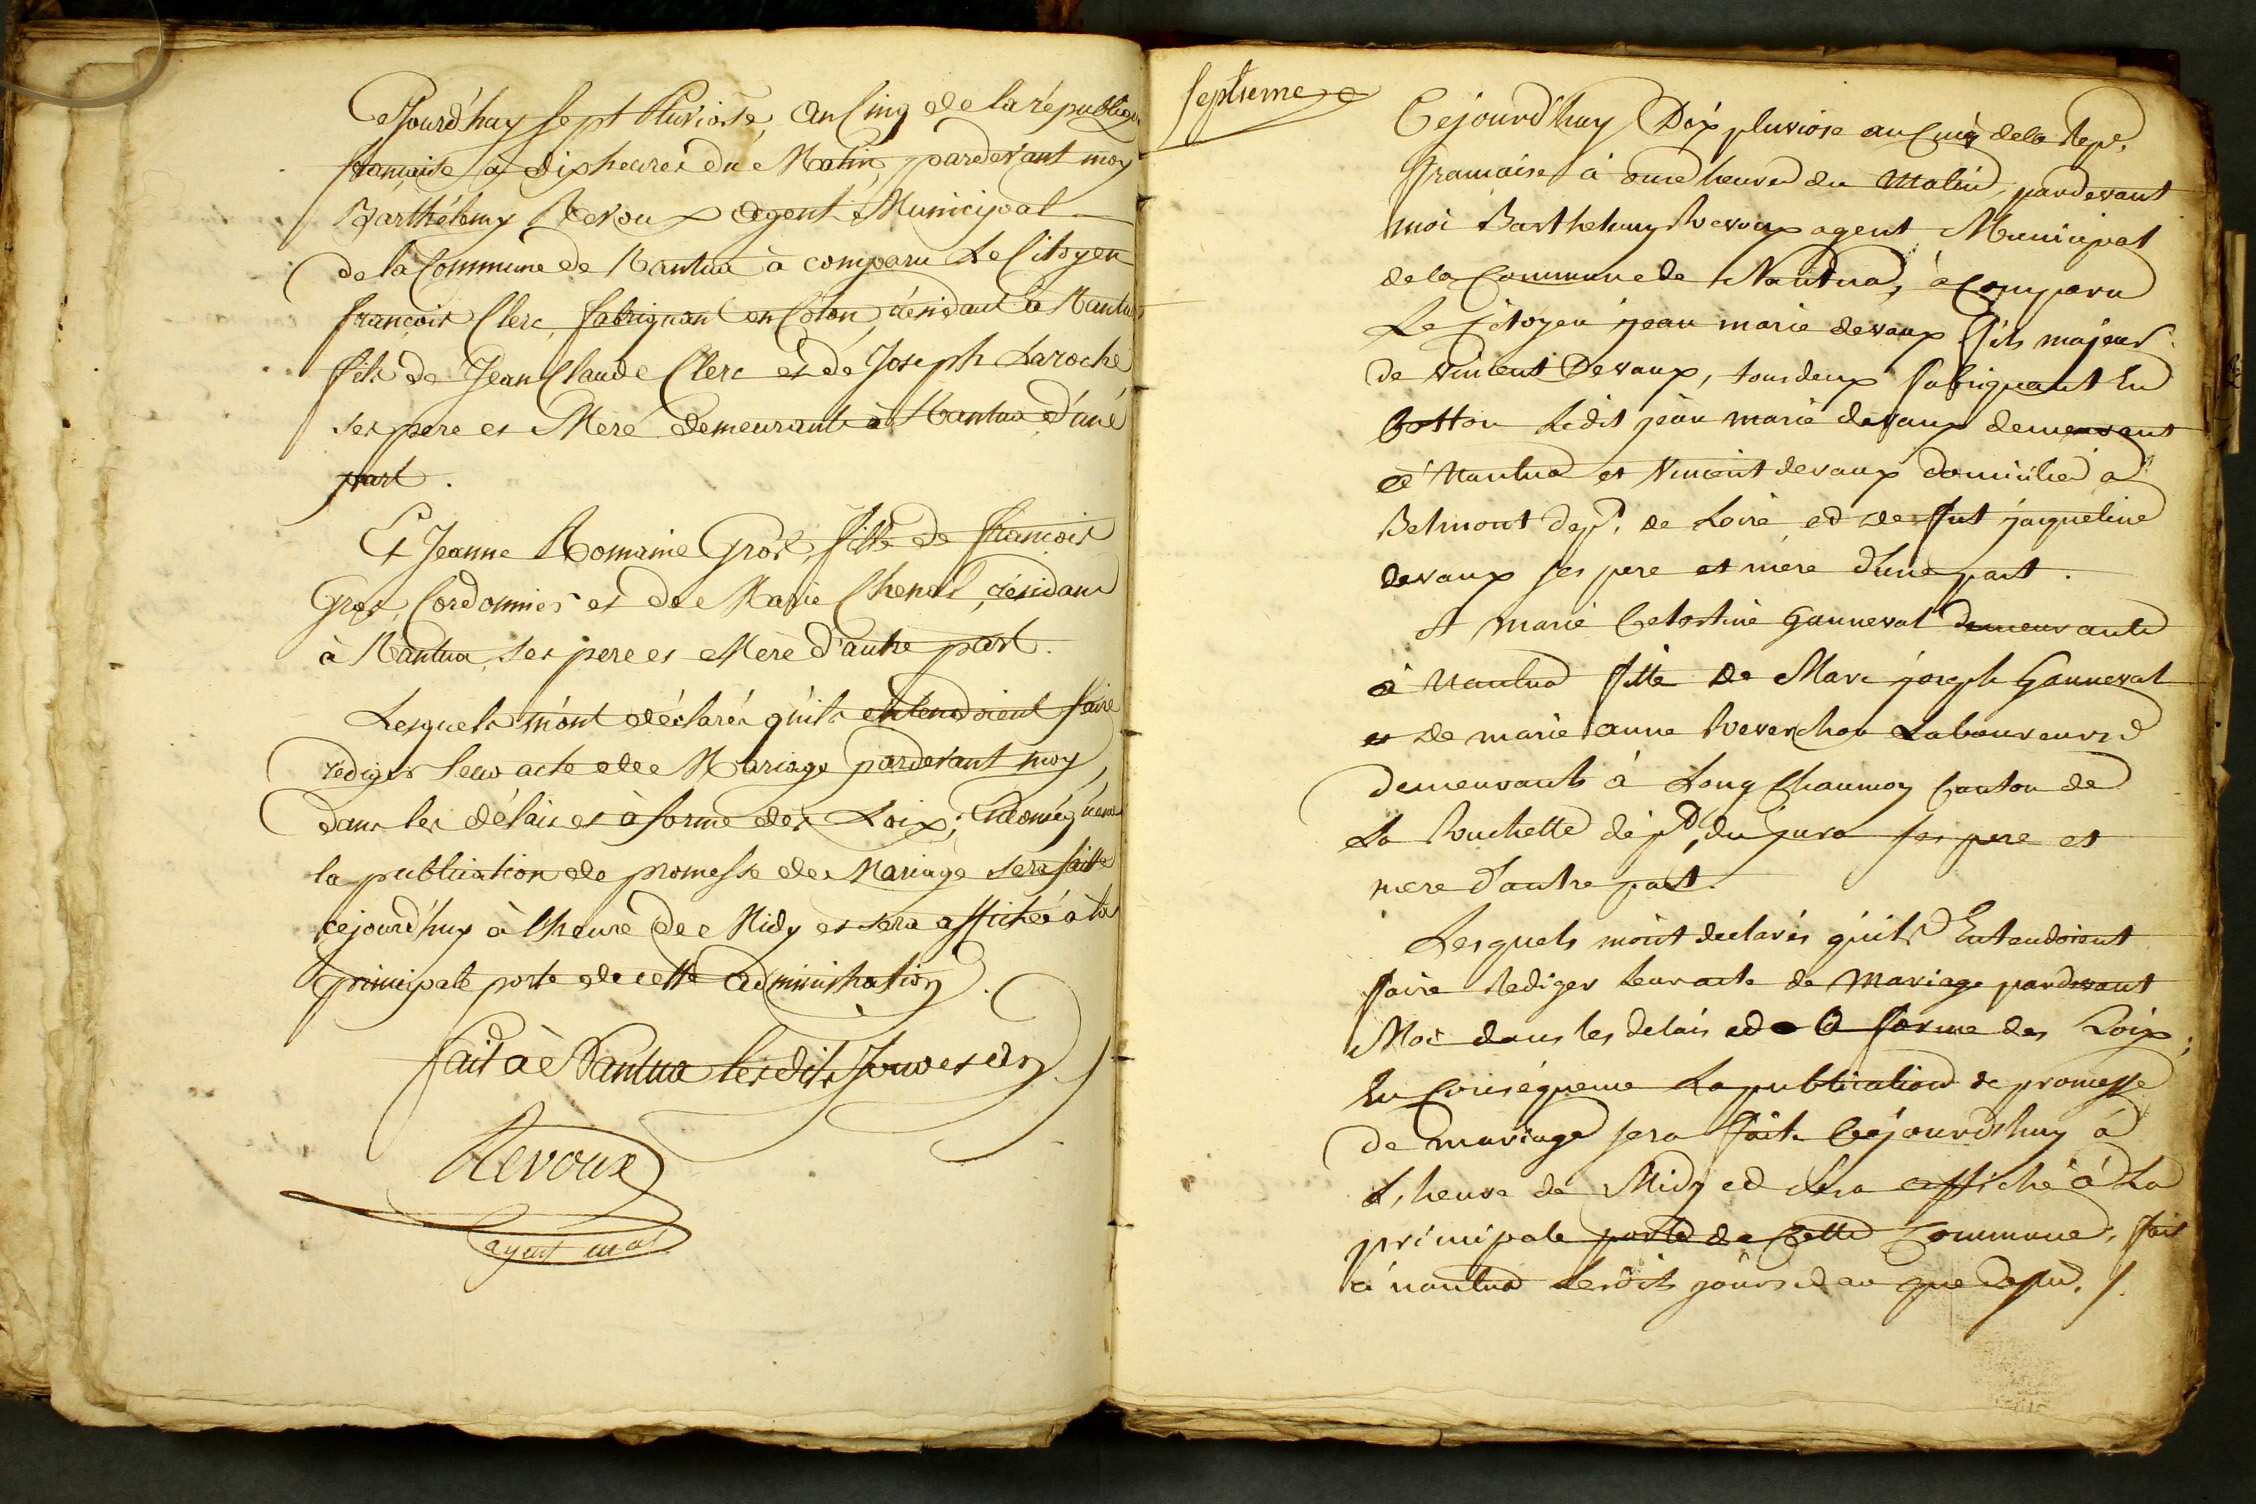 Cejourd'huy sept Pluviose, an Cinq de la républiq
française à dix heures du Matin, pardevant moy
Barthélemy Revoux agent Municipal
de la Commune de Nantua à comparu Le Citoyen
françois Clerc, fabriquant en Coton, résidant à Nantua
fils de Jean Claude Clerc et de Joseph Laroche
ses pere et Mere demeurants à Nantua d'une
part.
Et Jeanne Romaine Gros, fille de françois
Gros, Cordonnier et de Marie Chenel, résidant
à Nantua, ses pere et Mere d'autre part.
Lesquels m'ont déclarés qu'ils entendoient faire
rédiger leur acte de Mariage pardevant moy,
dans les délais et à forme des Loix; En conséquence
la publication de promesse de Mariage sera faitte
cejourd'huy à l'heure de Midy et sera affichée à la
principale porte de cette administration.
fait à Nantua lesdits Jour et an
Revoux
agent mal
septieme
Cejourd'huy Dix pluviose an Cinq de la Repe.
francaise à onze heures du Matin, pardevant
moi Barthelemy Revoux agent Municipal
de la Commune de Nantua, à Comparu
Le Citoyen jean marie devaux fils majeur
de vincent Devaux, tous deux fabriquant En
Cotton Ledit jean marie devaux demeurant
à Nantua et Vincent devaux domicilié a
Belmont dept. de Loire et de fut jaqueline
devaux ses pere et mère d'une part.
Et marie Celestine Ganneval demeurante
à Nantua fille de Marc joseph Ganneval
et de marie anne Reverchon Laboureurs
demeurants à Long Chaumoy Canton de
La Rouchette dépt. du jura ses pere et
mere d'autre part.
Lesquels m'ont declarés qu'ils Entendoient
faire Rediger Leur acte de Mariage pardevant
Moi dans les delais et a la forme des Loix;
En Conséquence La publication de promesse
de mariage sera faite Cejourd'huy à
L'heure de Midy et sera affiché à La
principale porte de Cette Commune, fait
à nantua Lesdits jours et an que dessus. /.